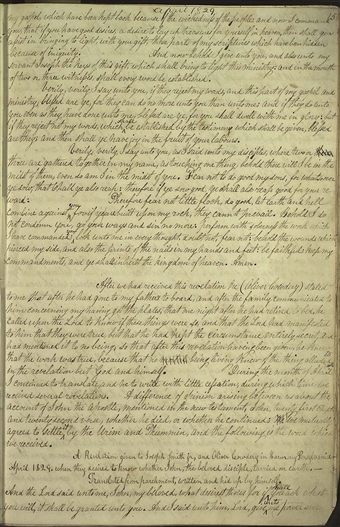 April 1829
15
my gospel which have been kept back because of the wickedness of the people; and now I command
you that if you have good desires, a desire to lay up treasures for yourself in heaven, then shall you
assist in bringing to light with your gift, those parts of my scriptures which have been hidden
because of iniquity. And now behold I give unto you, and also unto my
servant Joseph the keys of this gift, which shall bring to light this ministry; and in the mouth
of two or three witnesses shall every word be established.
Verily, verily I say unto you, if they reject my words, and this part of my gospel and
ministry, blessed are ye, for they can do no more unto you than unto me; and if they do unto
you even as they have done unto me, blessed are ye, for you shall dwell with me in glory: but
if they reject not my words, which shall be established by the testimony which shall be given, blessed
are they; and then shall ye have joy in the fruit of your labors.
Verily, verily I say unto you, as I said unto my disciples, where two or three
are gathered together in my name, as touching one thing, behold there will I be in the
midst of them; even so am I in the midst of you. Fear not to do good my sons, for whatsoever
ye sow, that shall ye also reap: therefore if ye sow good, ye shall also reap good for your re-
ward: Therefore fear not little flock, do good, let earth and hell
combine against you, for if ye are built upon my rock, they cannot prevail. Behold I do
not condemn you, go your ways and sin no more: perform with soberness the work which
I have commanded you; look unto me in every thought, doubt not, fear not: behold the wounds which
pierced my side, and also the prints of the nails in my hands and feet: be faithful; keep my
commandments, and ye shall inherit the kingdom of heaven. Amen.
After we had received this revelation he (Oliver Cowdery) stated
to me that after he had gone to my father's to board, and after the family communicated to
him concerning my having got the plates, that one night after he had retired to bed, he
called upon the Lord to know if these things were so, and that the Lord had manifested
to him that they were true, but that he had kept the circumstance entirely secret, and
had mentioned it to no being, so that after this revelation having been given, he knew
that the work was true, because that no being living knew of the thing alluded to
in the revelation but God and himself. During the month of April
I continued to translate, and he to write with little cessation, during which time we
received several revelations. A difference of opinion arising between us about the
account of John the Apostle, mentioned in the new testament, John, twenty first chapter
and twenty second verse, whether he died, or whether he continued; we mutually
agreed to settle it by the Urim and Thummim, and the following is the word which
we received.
A Revelation given to Joseph Smith jr, and Oliver Cowdery in Harmony Pennsylvania
April 1829, when they desired to know whether John, the beloved disciple, tarried on earth.—
Translated from parchment, written and hid up by himself.
And the Lord said unto me, John, my beloved, what desirest thou? for if ye shall ask what
you will, it shall be granted unto you. And I said unto him, Lord, give unto me power